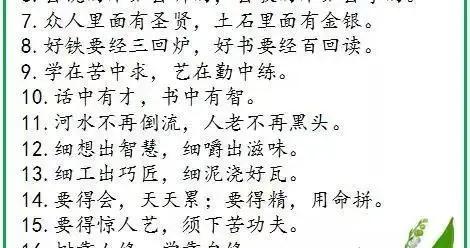 7. 众人里面有圣贤，土石里面有金银。
8. 好铁要经三回炉，好书要经百回读。
9. 学在苦中求，艺在勤中练。
10. 话中有才，书中有智。
11. 河水不再倒流，人老不再黑头。
12. 细想出智慧，细嚼出滋味。
13. 细工出巧匠，细泥浇好瓦。
14. 要得会，天天累；要得精，用命拼。
15. 要得惊人艺，须下苦功夫。